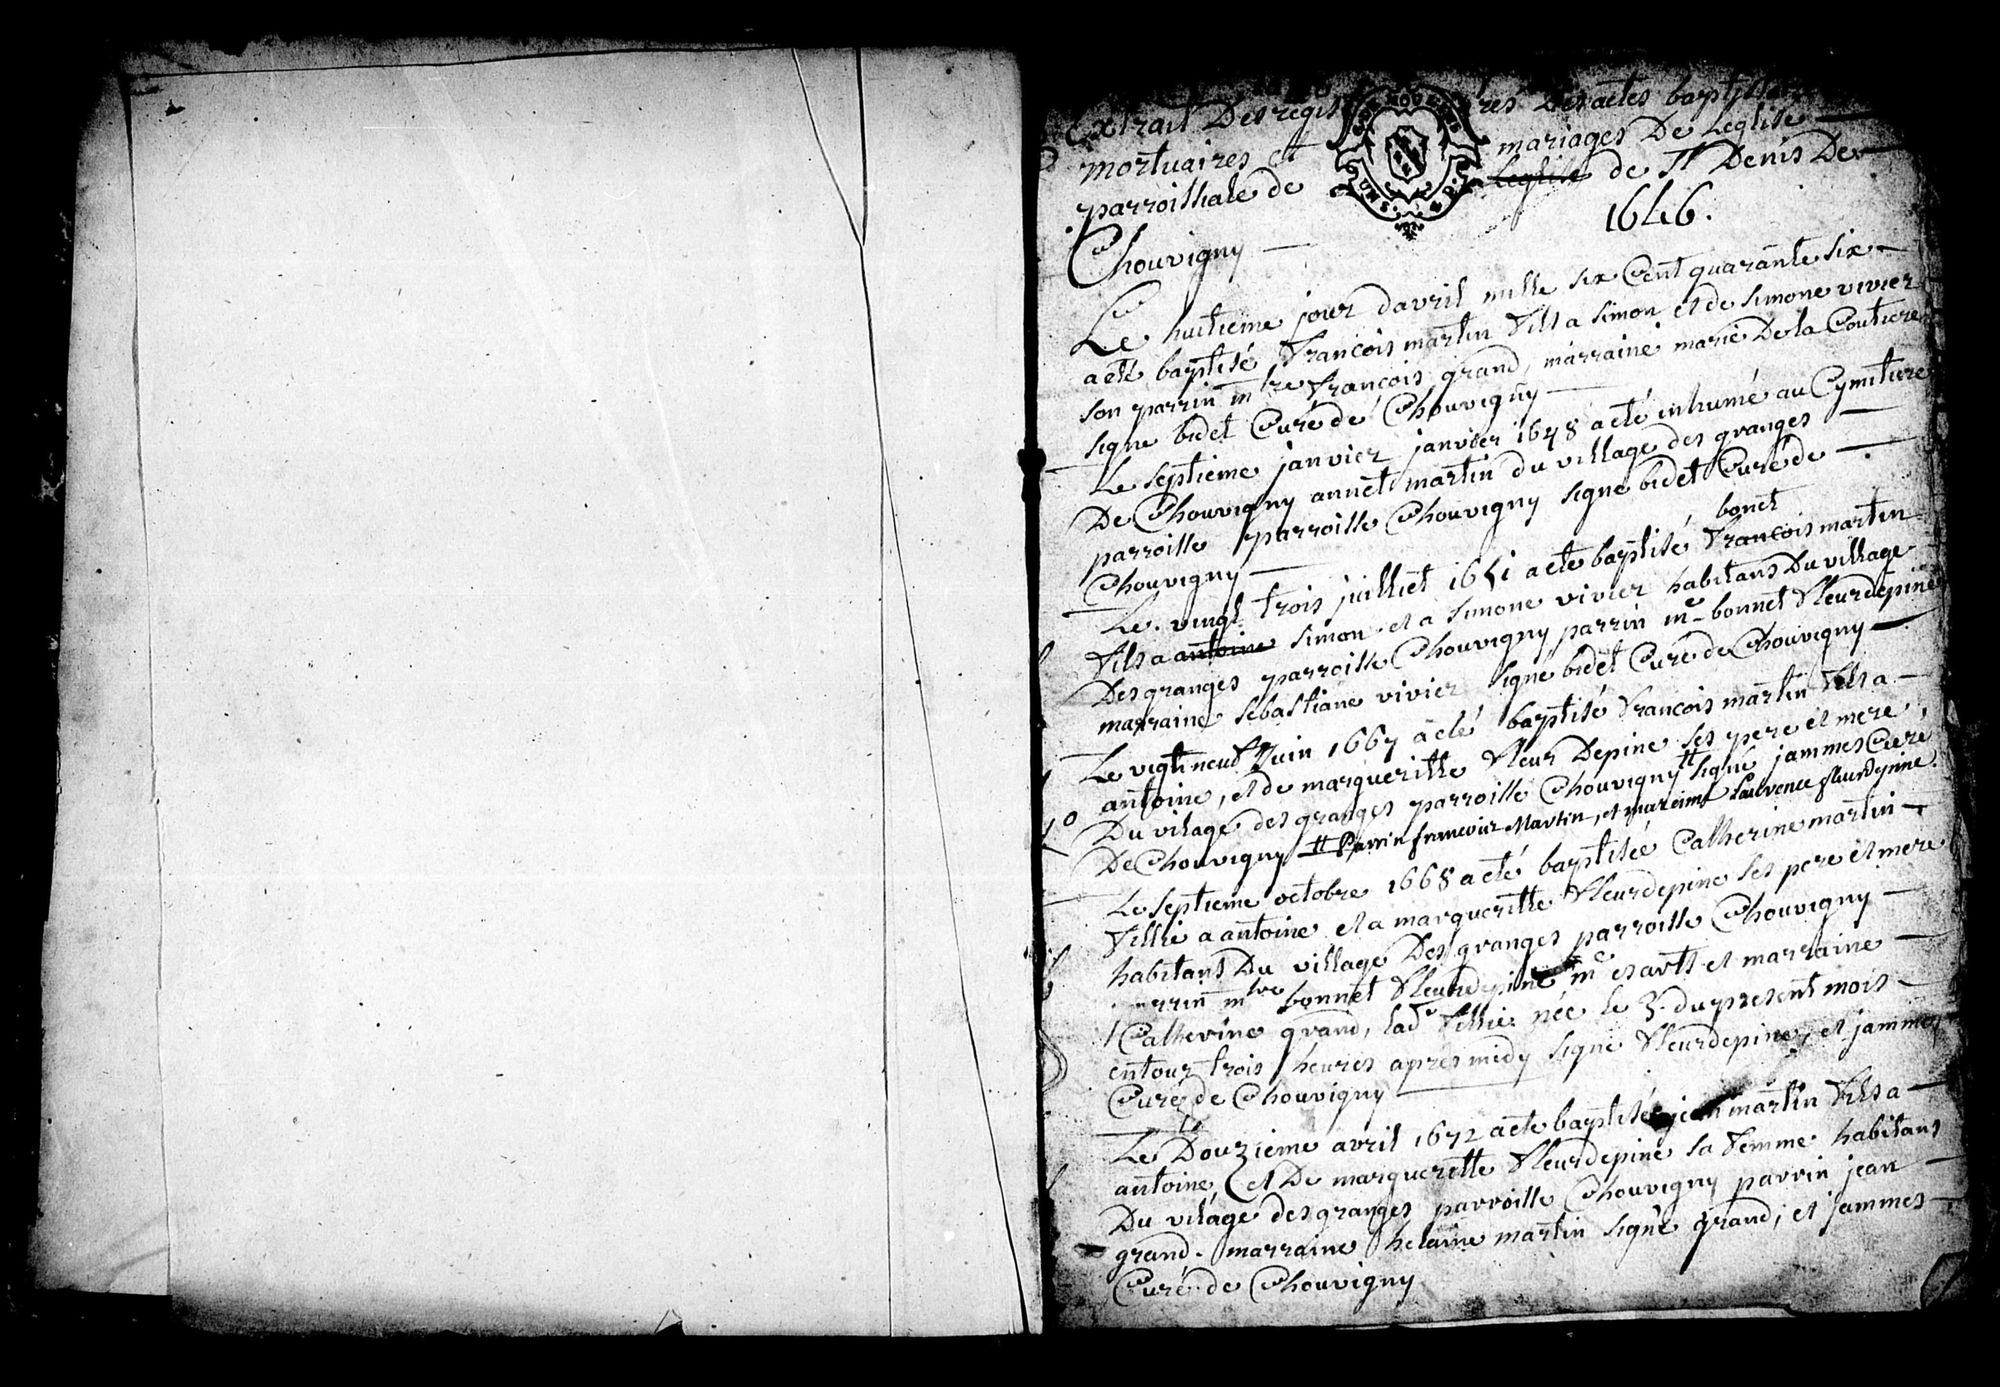 Extrait Des registres Des actes baptistaires
mortuaires et mariages De Leglise
parroissiale de Leglise de St Denis De
Chouvigny 1646.
Le huitieme jour davril mille six Cent quarante six
a eté baptisé François martin Fils a simon et de simone vivier
son parrin mtre François grand, marraine marie De la Coutiere
signe bidet Curé de Chouvigny
Le septieme janvier janvier 1648 a eté inhumé au Cymitiere
De Chouvigny annet martin du village des granges
parroisse parroisse Chouvigny signe bidet Curé de
Chouvigny
bonet
Le vingt trois juilliet 1651 a eté baptisé François martin
Fils a antoine simon et a simone vivier habitans Du village
Des granges parroisse Chouvigny parrin me bonnet Fleurdepine
marraine sebastiane vivier signe bidet Curé de Chouvigny
Le vigtineuf Juin 1667 a eté baptisé François martin Fils a
antoine, et de marqueritte Fleur Depine ses pere et mere
Du vilage des granges parroisse Chouvigny # signe jammes Curé
De Chouvigny # Parrin francoix Martin, et mareine Laurence fleurdepine
Le septieme octobre 1668 a eté baptisée Catherine martin
Fillie a antoine et a marqueritte Fleurdepine ses pere et mere
habitans Du village Des granges parroisse Chouvigny
parrin mtre bonnet Fleurdepine me es arts et marraine
Catherine grand, lade Fillie née le 3. du present mois
entour trois heures apres midy signe Fleurdepine, et jammes
Curé de Chouvigny
Le Douzieme avril 1672 a eté baptisé jean martin Fils a
antoine et De marqueritte Fleurdepine sa Femme habitans
Du vilage des granges parroisse Chouvigny parrin jean
grand. marraine helaine martin signe grand, et jammes
Curé de Chouvigny